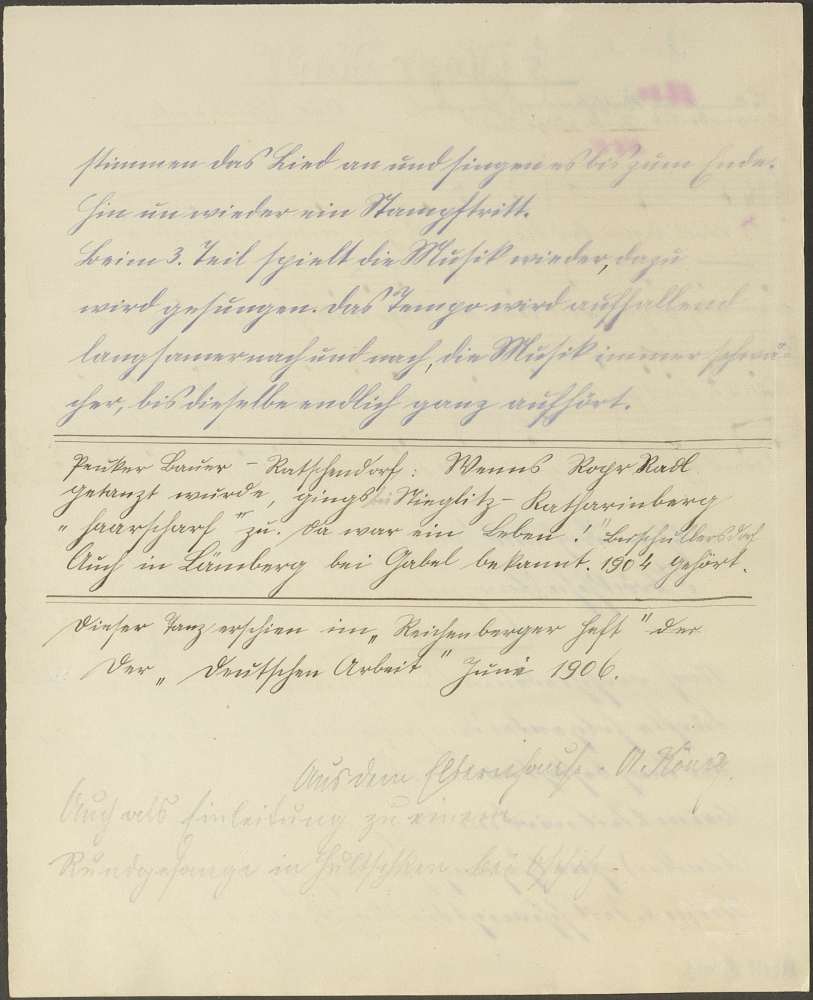 stimmen das Lied an und singen es bis zum Ende.
Hin un wieder ein Stampftritt.
Beim 3. Teil spielt die Musik wieder, dazu
wird gesungen. Das Tempo wird auffallend
langsamer nach und nach, die Musik immer schwä-
cher, bis dieselbe endlich ganz aufhört.
Peuker Bauer - Ratschendorf: Wenns Ropr Radl
getanzt wurde, gings bei Stieglitz - Katharinberg
"haarscharf" zu. Da war ein Leben!"
Auch in Lämberg bei Gabel bekannt. 1904 gehört.
Dieser Tanz erschien im "Reichenberger Heft" der
Der "Deutschen Arbeit" Juni 1906.
Aus dem Elternhause. A. König.
Auch als Einleitung zu einem
Rundgesange in